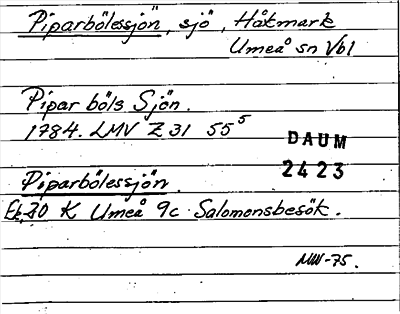 Piparbölessjön, sjö, Håkmark
Umeå sn Vbl
Pipar böls Sjön.
1784. LMV Z 31 55⁵
DAUM
2423
Piparbölessjön.
Ek. 20 K Umeå 9c Salomonsbesök.
MW-75.